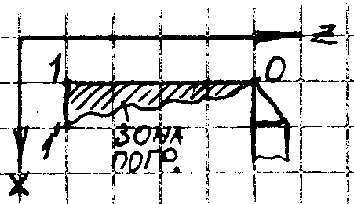 Z
1 0
1'
ЗОНА
ПОГР.
X